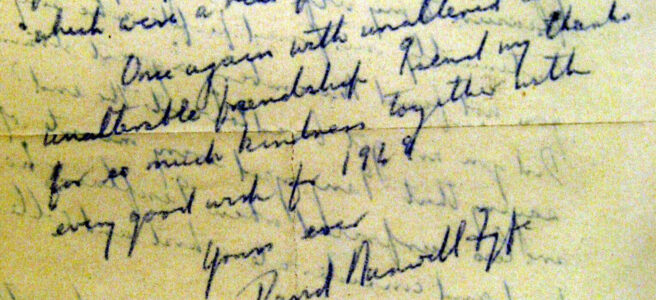 which were a
Once again with unaltered
unalterable friendship I send my thanks
for so much kindness together with
every good wish for 1948
Yours ever
David Maxwell Fyfe